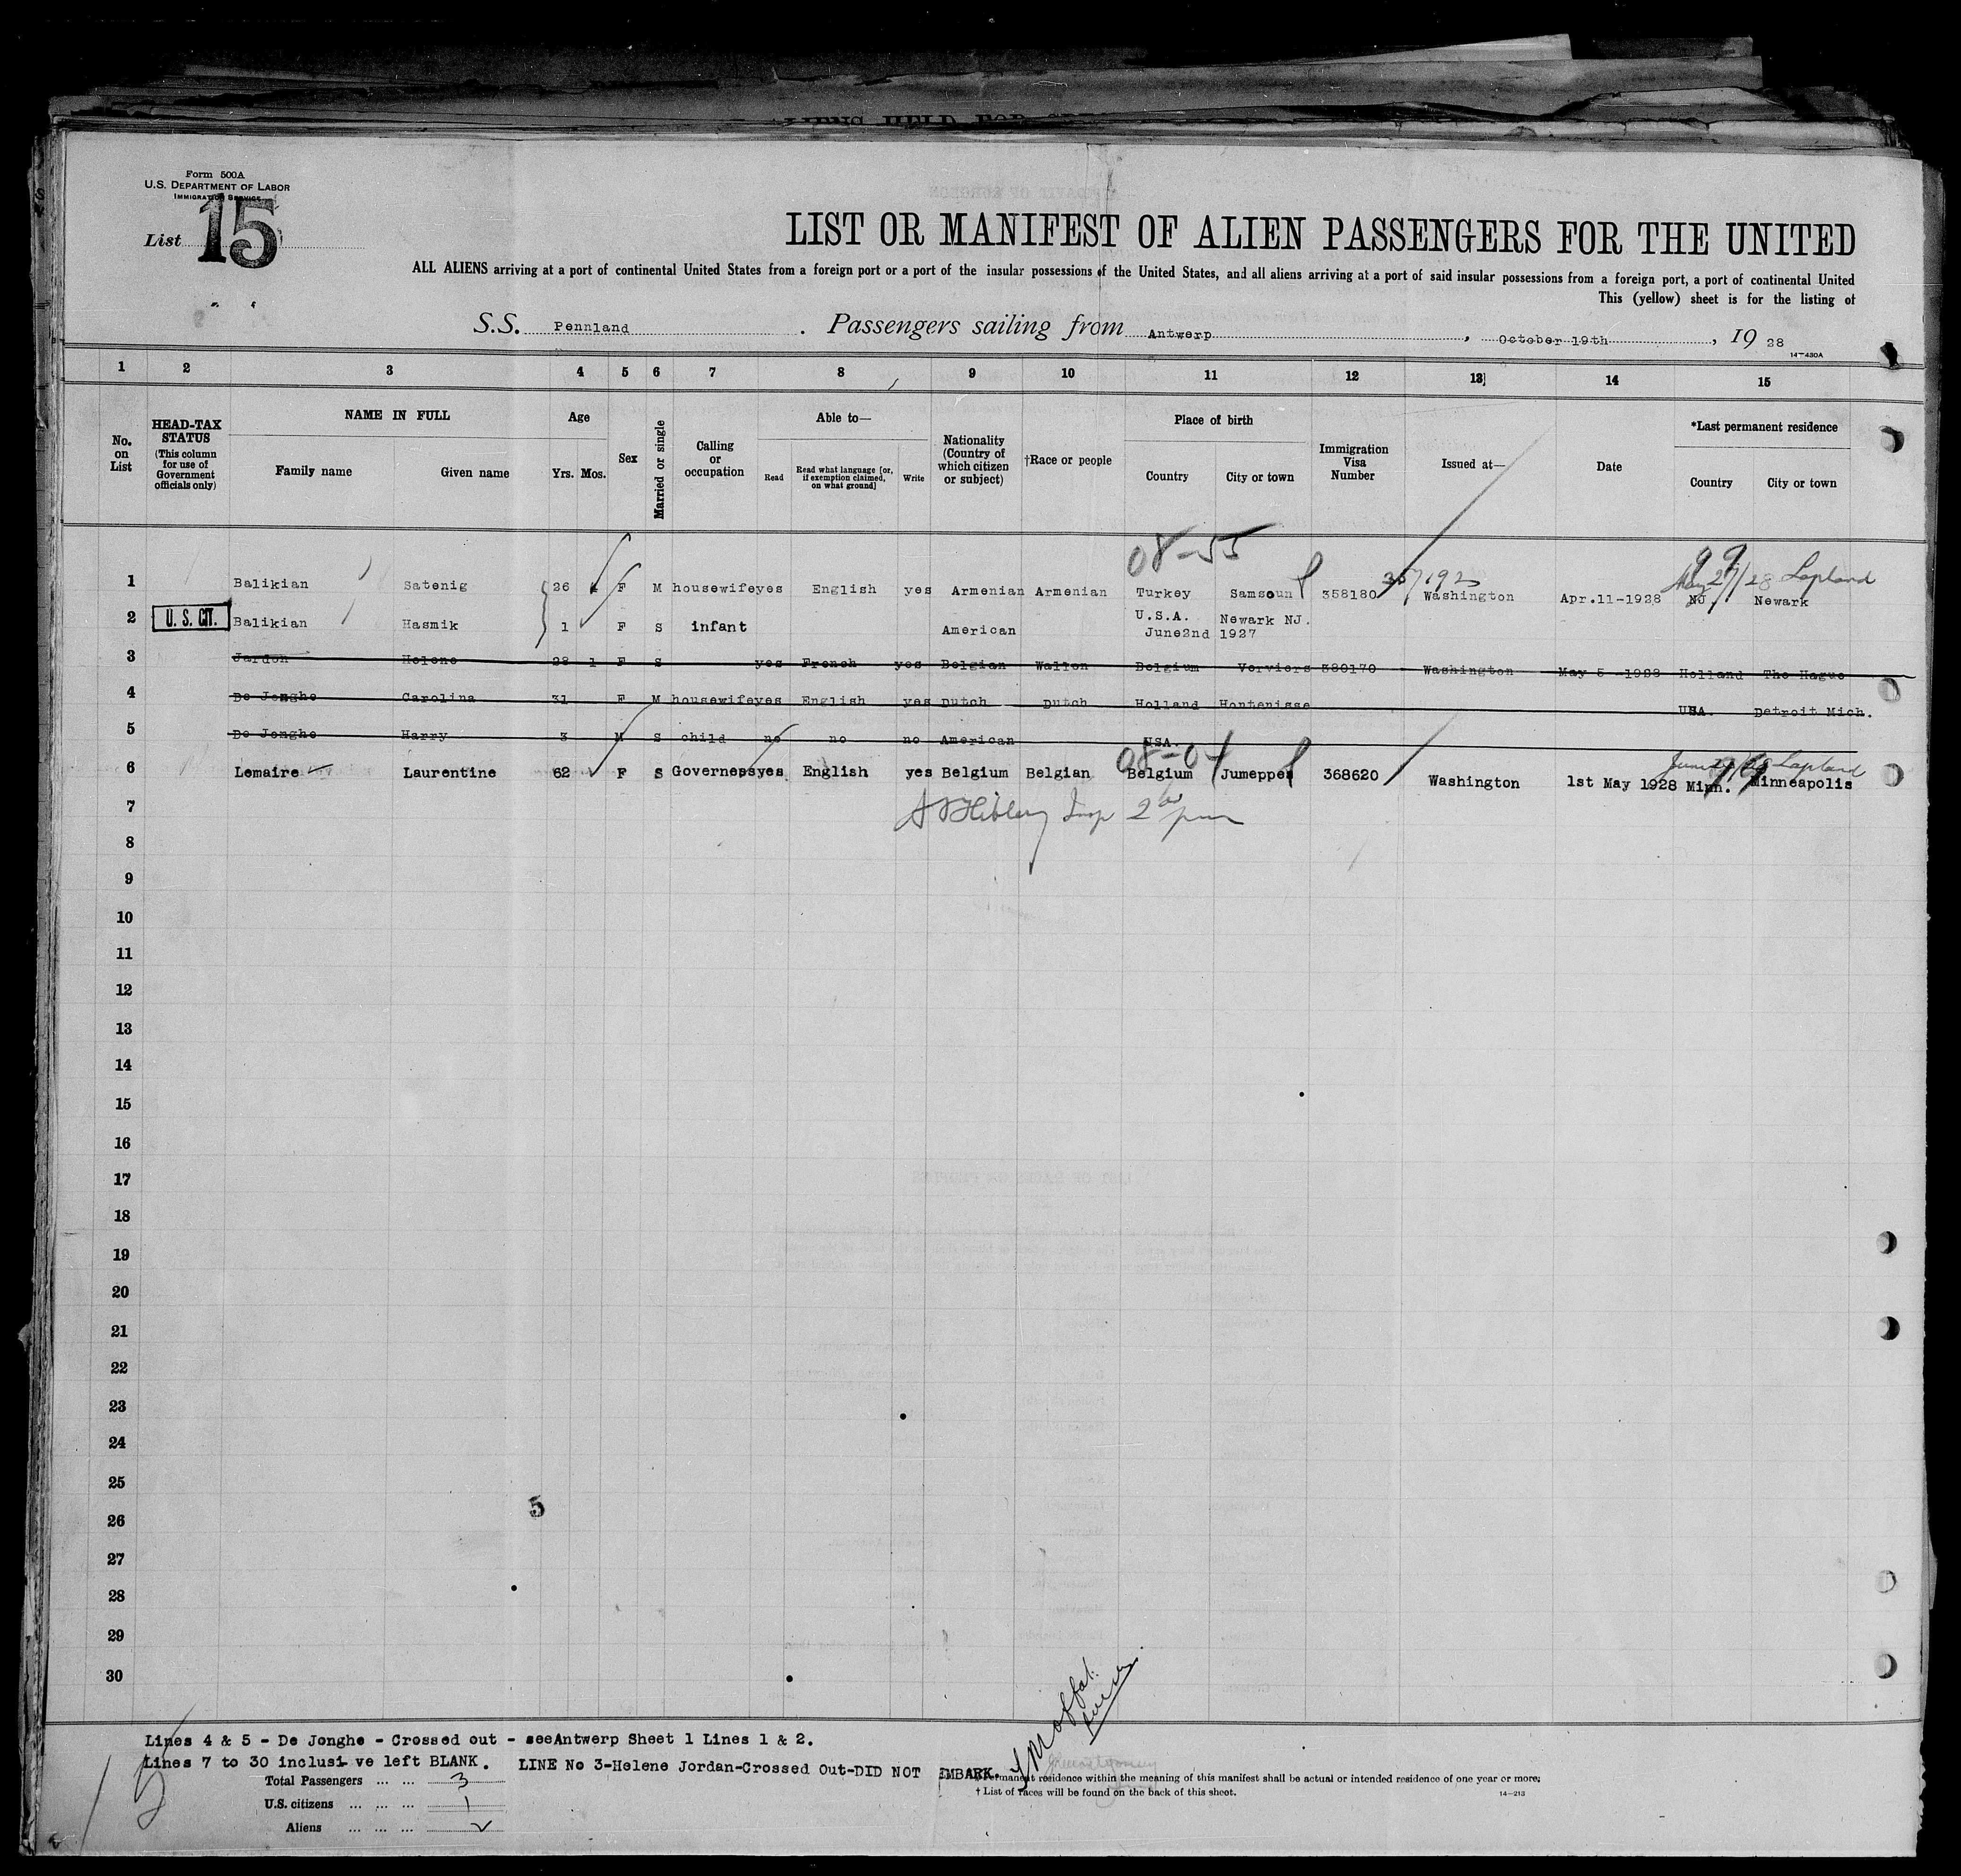 ALIENS HELD FOR
Form 500A
U.S. DEPARTMENT OF LABOR
IMMIGRATION SERVICE
List 15
LIST OR MANIFEST OF ALIEN PASSENGERS FOR THE UNITED
ALL ALIENS arriving at a port of continental United States from a foreign port or a port of the insular possessions of the United States, and all aliens arriving at a port of said insular possessions from a foreign port, a port of continental United
This (yellow) sheet is for the listing of
S.S. Pennland. Passengers sailing from Antwerp, October 19th, 19 28
14-430A
1 2 3 4 5 6 7 8 9 10 11 12 13 14 15
No. on List
HEAD-TAX STATUS
(This column for use of Government officials only)
NAME IN FULL
Family name Given name
Age
Yrs. Mos.
Sex
Married or single
Calling or occupation
Able to—
Read Read what language [or, if exemption claimed, on what ground] Write
Nationality (Country of which citizen or subject)
†Race or people
Place of birth
Country City or town
Immigration Visa Number
Issued at—
Date
*Last permanent residence
Country City or town
08-55
May 27/28 Lapland
1 Balikian Satenig 26 F M housewife yes English yes Armenian Armenian Turkey Samsoun 358180 Washington Apr.11-1928 NJ Newark
2 U. S. CIT. Balikian Hasmik 1 F S infant American U.S.A. June2nd Newark NJ. 1927
3 Jardon Helene 28 1 F S yes French yes Belgian Wallon Belgium Verviers 380170 Washington May 5 -1928 Holland The Hague
4 De Jonghe Carolina 31 F M housewife yes English yes Dutch Dutch Holland Hontenisse USA. Detroit Mich.
5 De Jonghe Harry 3 M S child no no no American USA.
6 Lemaire Laurentine 62 F S Governess yes English yes Belgium Belgian Belgium Jumeppes 368620 Washington 1st May 1928 Minn. Minneapolis
7
8
9
10
11
12
13
14
15
16
17
18
19
20
21
22
23
24
25
5
26
27
28
29
30
Lines 4 & 5 - De Jonghe - Crossed out - seeAntwerp Sheet 1 Lines 1 & 2.
Lines 7 to 30 inclusi-ve left BLANK. LINE No 3-Helene Jordan-Crossed Out-DID NOT EMBARK.
Total Passengers ... ... 3
U.S. citizens ... ... ... 1
Aliens ... ... ... 2
Permanent residence within the meaning of this manifest shall be actual or intended residence of one year or more.
† List of races will be found on the back of this sheet.
14-213